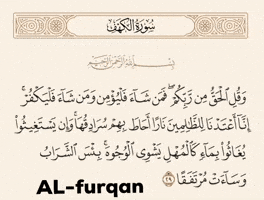 سُورَةُ الكَهْفِ
بِسْمِ اللَّهِ الرَّحْمَٰنِ الرَّحِيمِ
وَقُلِ ٱلْحَقُّ مِن رَّبِّكُمْ ۖ فَمَن شَآءَ فَلْيُؤْمِن وَمَن شَآءَ فَلْيَكْفُرْ ۚ
إِنَّآ أَعْتَدْنَا لِلظَّٰلِمِينَ نَارًا أَحَاطَ بِهِمْ سُرَادِقُهَا ۚ وَإِن يَسْتَغِيثُوا۟
يُغَاثُوا۟ بِمَآءٍ كَٱلْمُهْلِ يَشْوِى ٱلْوُجُوهَ ۚ بِئْسَ ٱلشَّرَابُ
وَسَآءَتْ مُرْتَفَقًا ٢٩
AL-furqan